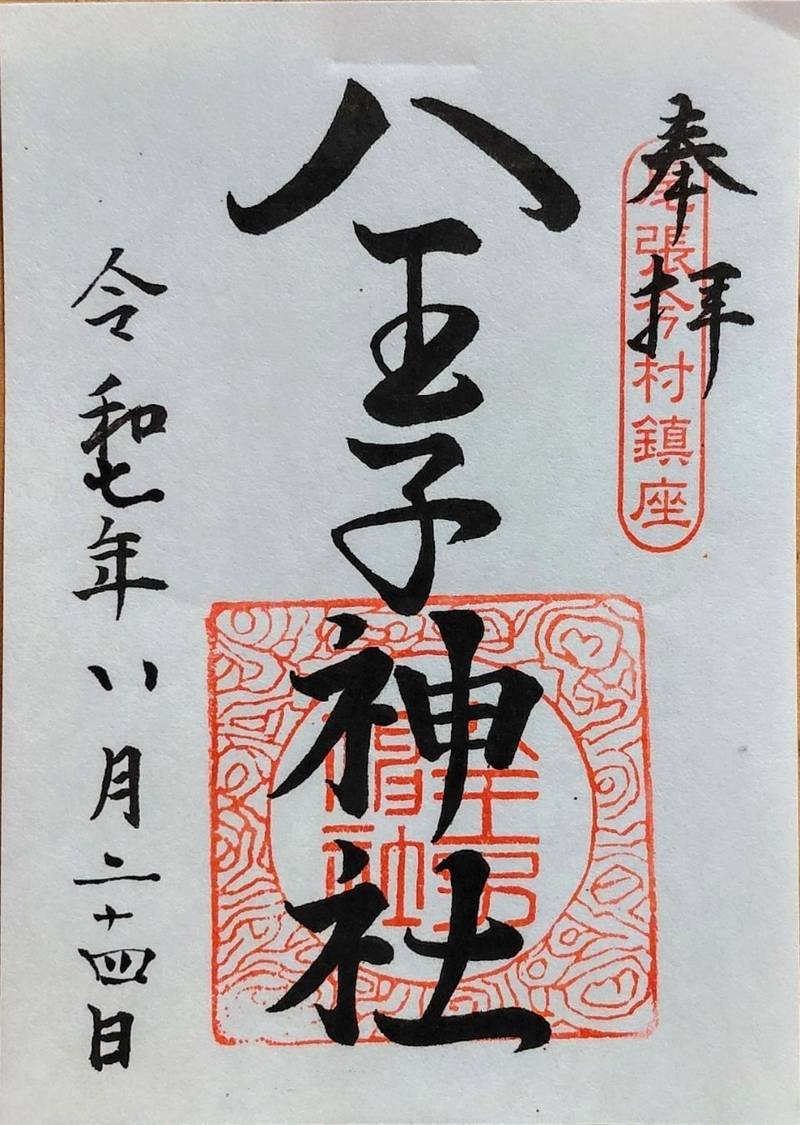 奉拝
尾張今村鎮座
八王子神社
令和七年八月二十四日